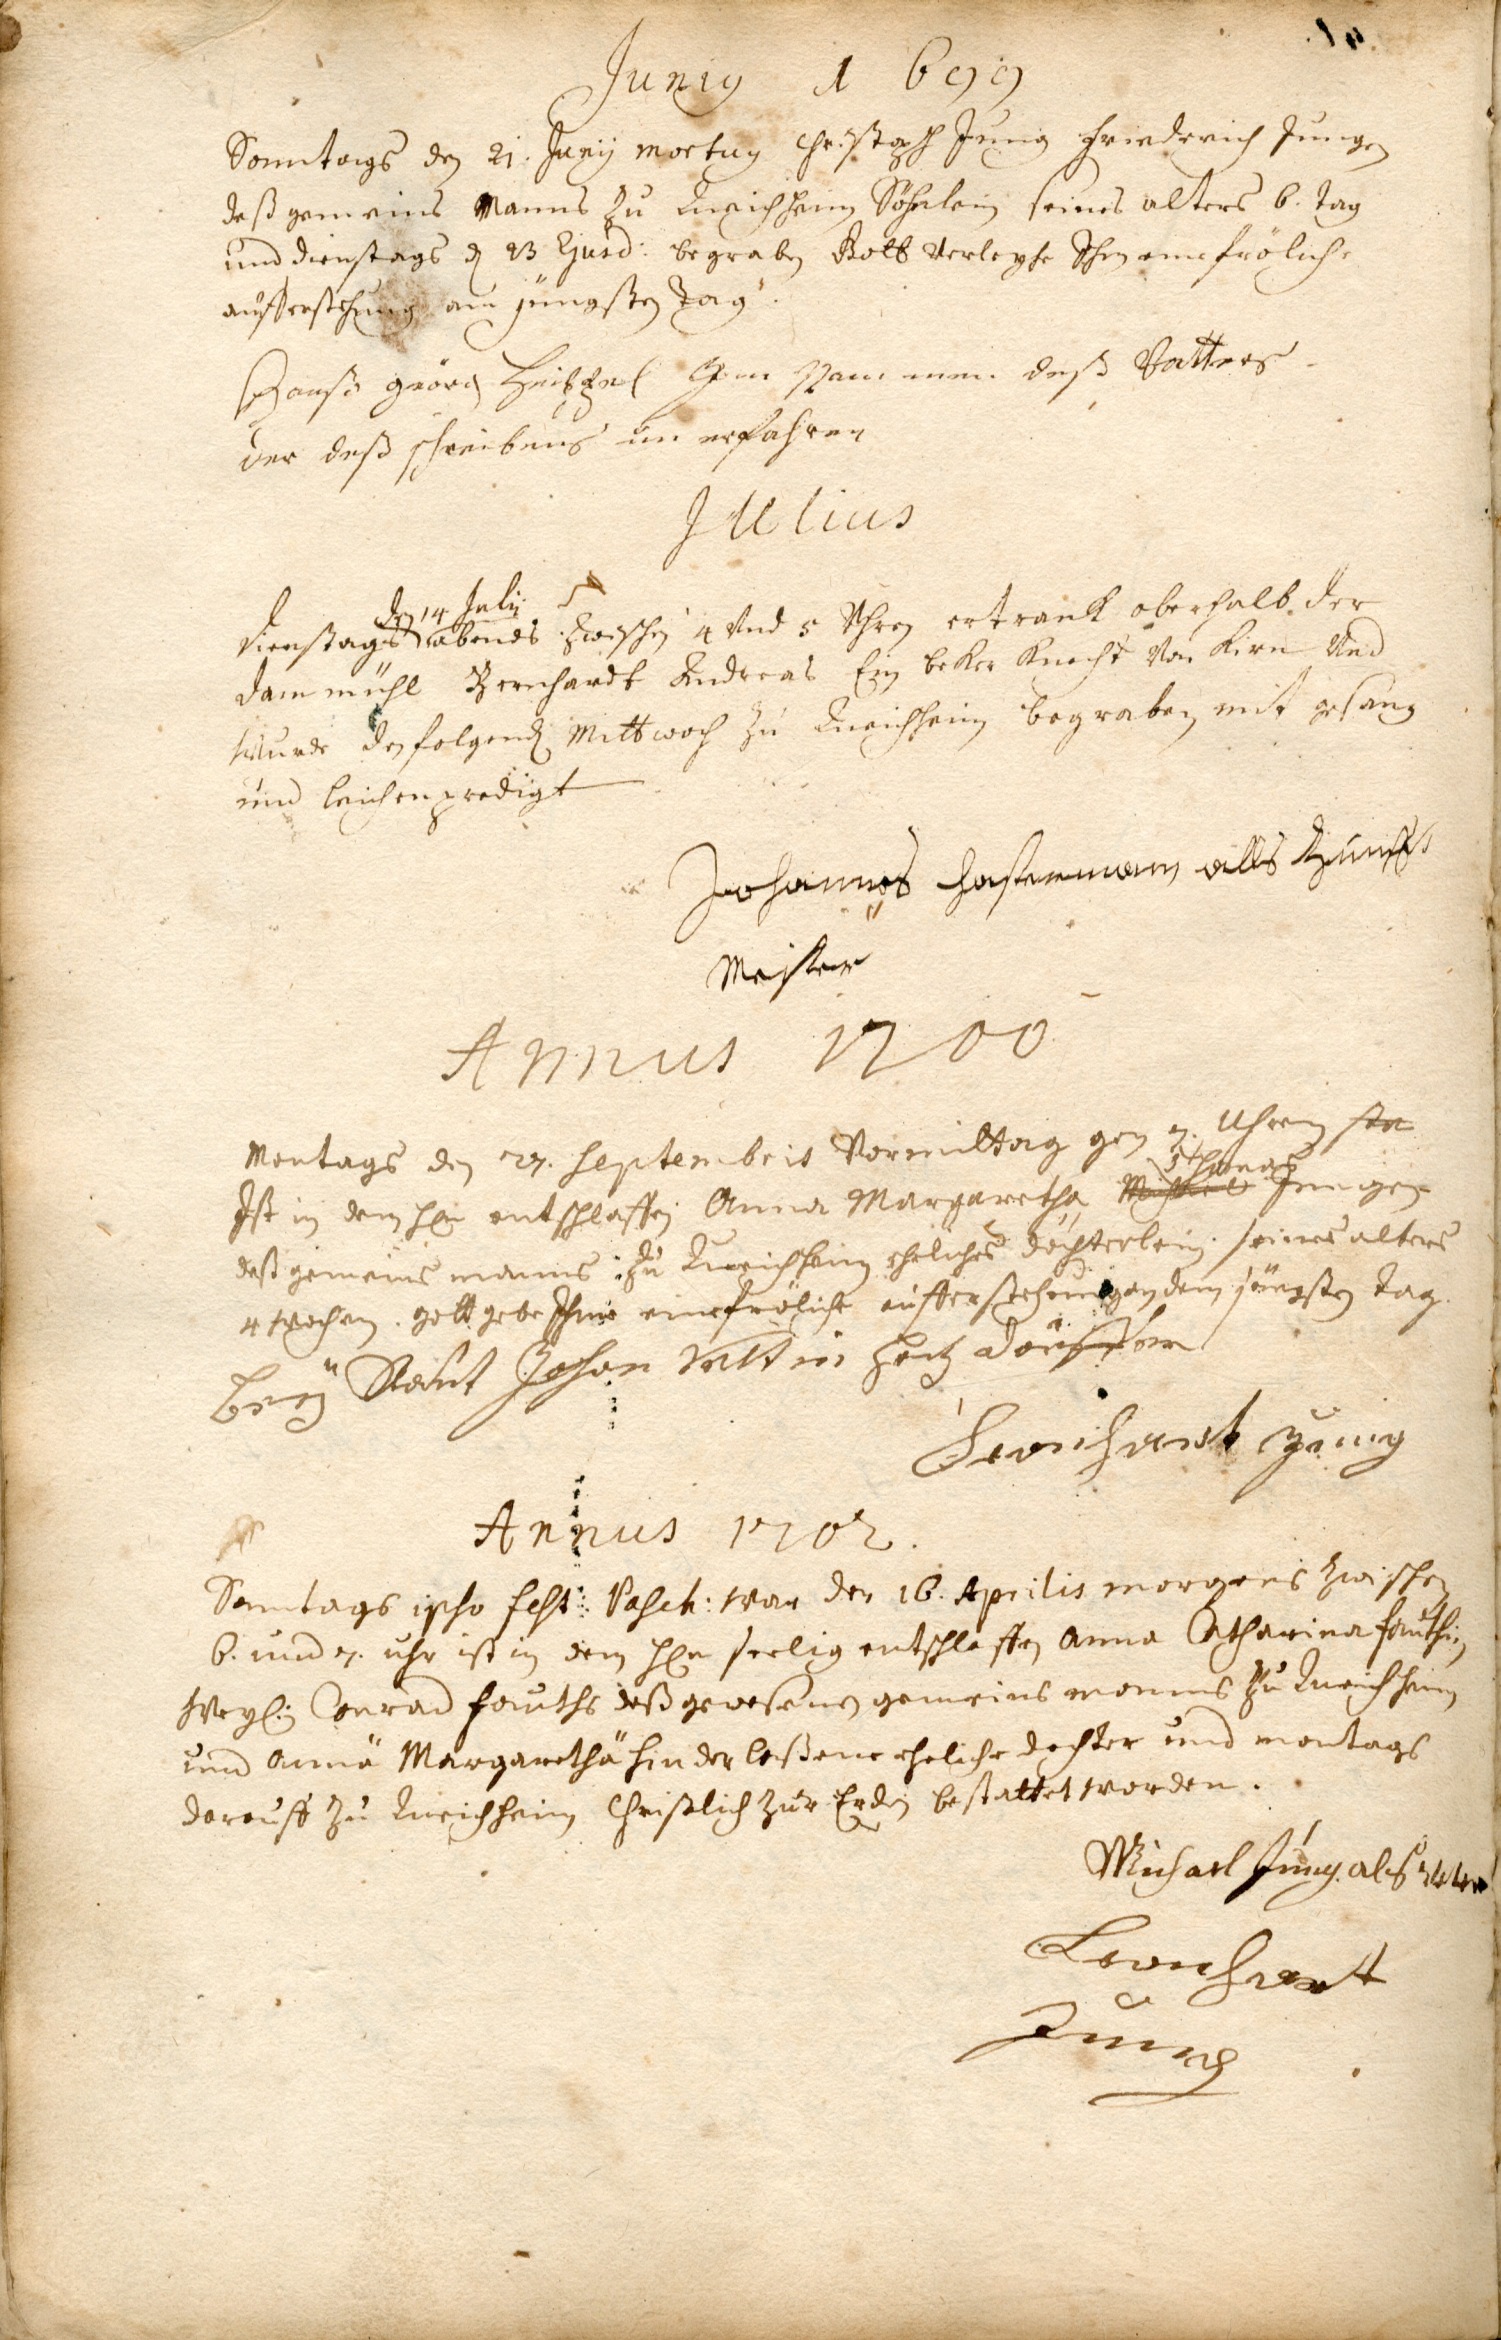 Junius 1699
Sonntags den 21. Junij mortuus Christoph Jung Friederich Jungen
deß gemeins Manns zu Queichheim Söhnlein seines alters 6. tag
und dienstags d 23 Ejusd: begraben Gott verleyhe Ihm eine fröliche
aufferstehung am jüngsten Tag.
Hanß Geörg im Nammen deß Vatters
der deß schreibens un erfahren
Julius
den 14 Julij
Dienstags abends zwischen 4 und 5 Uhren ertrank oberhalb der
Dammühl Bernhardt Andreas Ein beker Knecht von Kirn Und
wurde den folgend Mittwoch zu Queichheim begraben mit gesang
und leichenpredigt
Johannes alls Zunfft
Meister
Annus 1700
Montags den 27. Septembris Vormittag gen 7. Uhren
Ist in dem Hln entschlaffen Anna Margaretha Jungen
deß gemeins manns zu Queichheim eheliches döchterlein seines alters
4 wochen. gott gebe Ihme eine fröliche aufferstehung an dem jüngsten tag.
Johan
Leonhart Jung
Annus 1702.
Sonntags ipso fest: Pasch: war der 16. Aprilis morgens zwischen
6. und 7. uhr ist in dem Hln seelig entschlaffen Anna Catharina Fauthin
weyl: Conrad Fauths deß gewesenen gemeins manns zu Queichheim
und Annä Margarethä hinderlaßene eheliche dochter und montags
darauff zu Queichheim Christlich zur Erden bestattet worden.
Michael Jung als
Leonhart
Jung